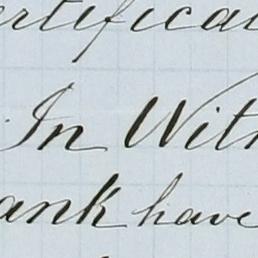 ertifica
In With
ank have